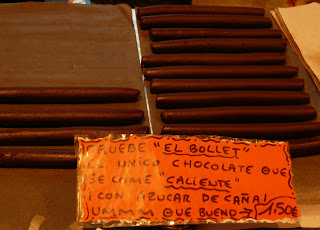 PRUEBE "EL BOLLET"
EL UNICO CHOCOLATE QUE
SE COME "CALIENTE"
¡CON AZUCAR DE CAÑA!
UMMM QUE BUENO→ 1,50€